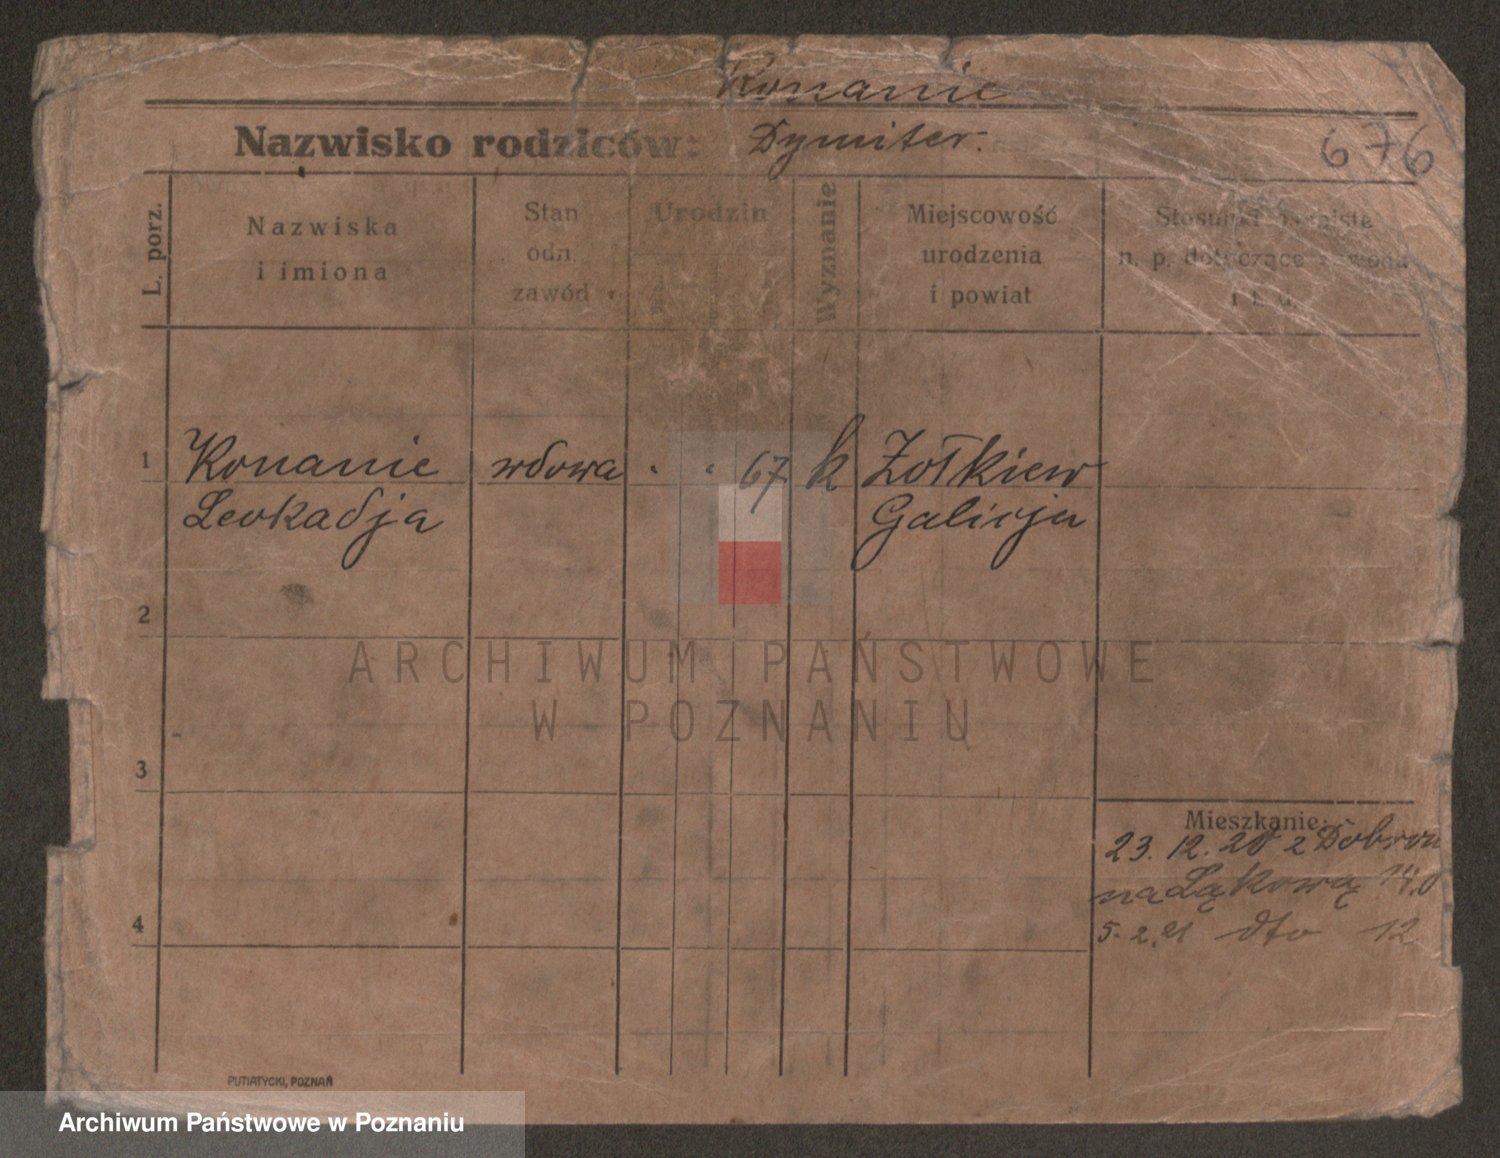 Konanic
Nazwisko rodziców: Dymiter.
676
L. porz.
Nazwiska
i imiona
Stan
odn.
zawód
Urodzin
Wyznanie
Miejscowość
urodzenia
i powiat
Stosunki
n. p. dotyczące zawodu
i t. d.
1 Konanic wdowa " " 67 k Żołkiew
Leokadja Galicja
2
ARCHIWUM PAŃSTWOWE
W POZNANIU
3
Mieszkanie:
23. 12. 20 z Dobrou
na Łąkową
4
5. 2. 21 dto 12
PUTIATYCKI, POZNAŃ
Archiwum Państwowe w Poznaniu